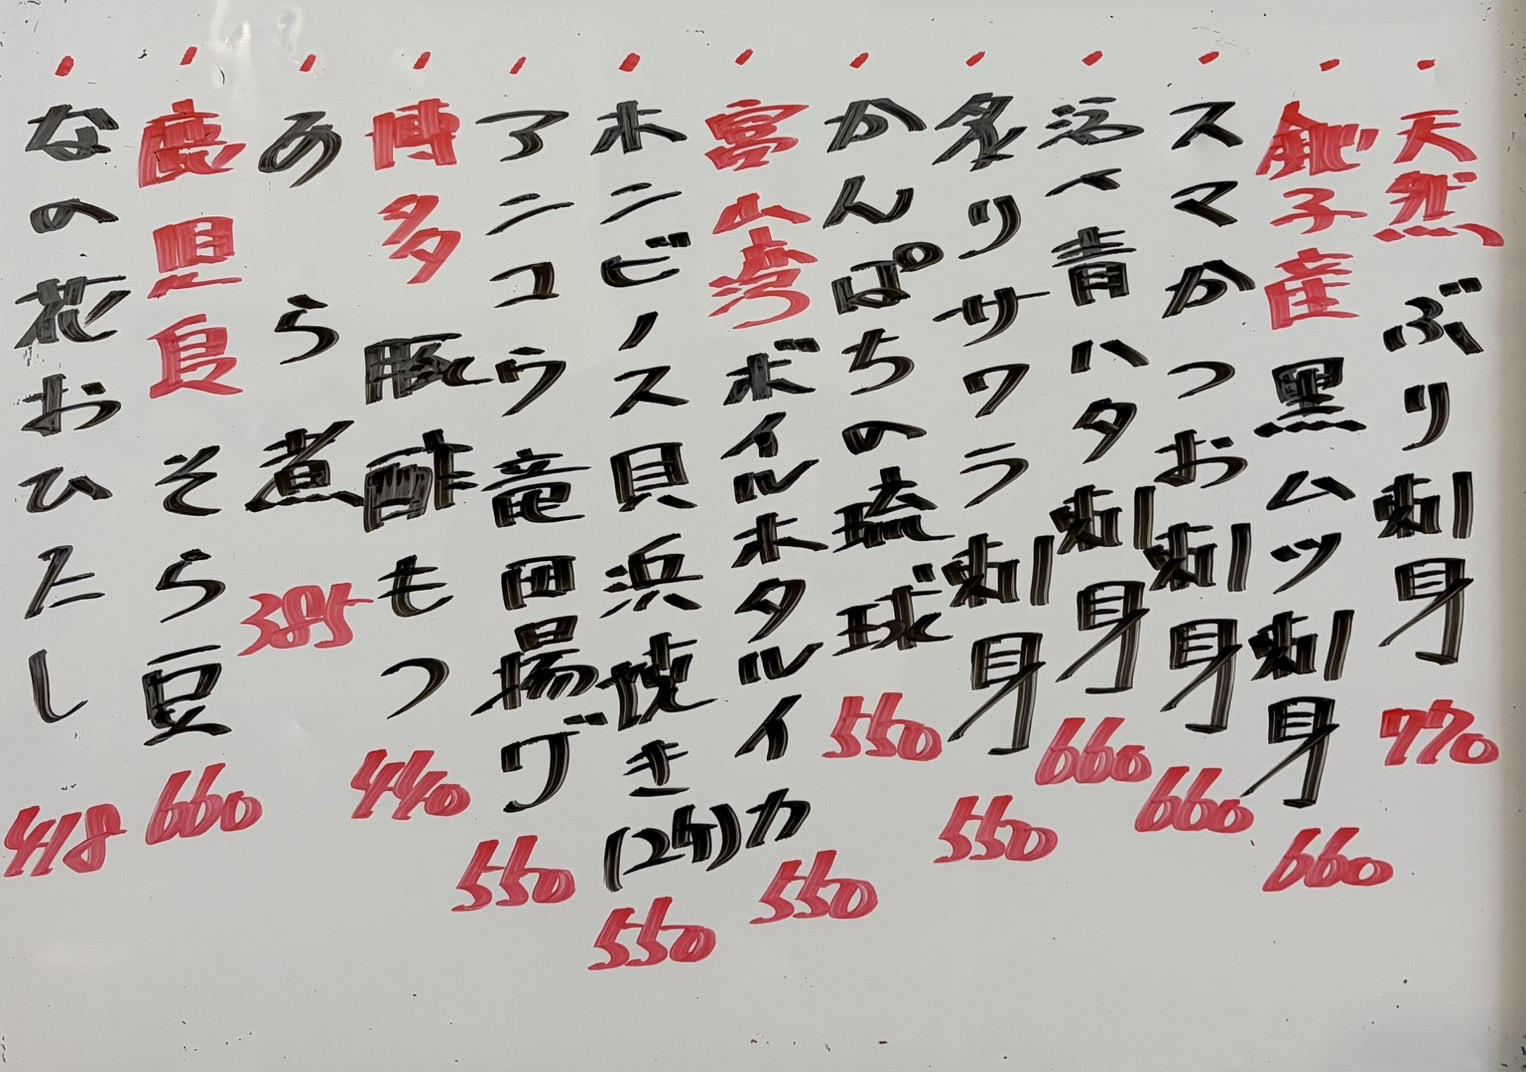 天然ぶり刺身 770
銚子産黒ムツ刺身 660
スマかつお刺身 660
活〆青ハタ刺身 660
炙りサワラ刺身 550
かんぱちの琉球 550
富山湾ボイルホタルイカ 550
ホンビノス貝浜焼き(2ケ) 550
アンコウ竜田揚げ 550
博多豚酢もつ 440
あら煮 385
鹿児島そら豆 660
なの花おひたし 418